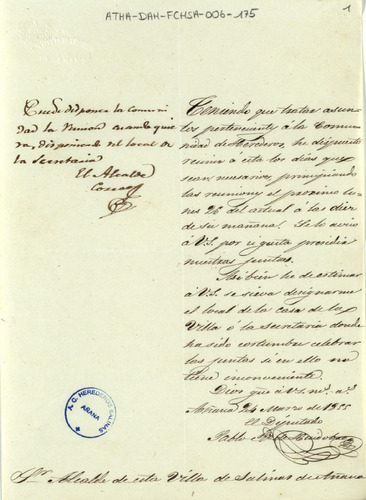 ATHA-DAH-FCHSA-006-175
1
Puede disponer la Comuni
dad la Reunion cuando quie
ra, disponiendo del local de
la Secretaria
El Alcalde
Teniendo que tratar asun
tos pertenecientes á la Comu
nidad de Herederos, he dispuesto
reunir á esta los dias que
sean necesarios, principiando
las reuniones el procsimo lu
nes 26 del actual á las diez
de su mañana. Se lo aviso
á V.S. por si gusta presidir
nuestras juntas.
Asi bien he de estimar
á V.S. se sirva designarme
el local de la casa de la
Villa ó la Secretaria donde
ha sido costumbre celebrar
las juntas si en ello no
tiene inconveniente.
Dios gue á V.S. ms. as.
Añana 24 Marzo de 1855
El Diputado
Pablo
A. C. HEREDEROS SALINAS
AÑANA
Sr. Alcalde de esta Villa de Salinas de Añana